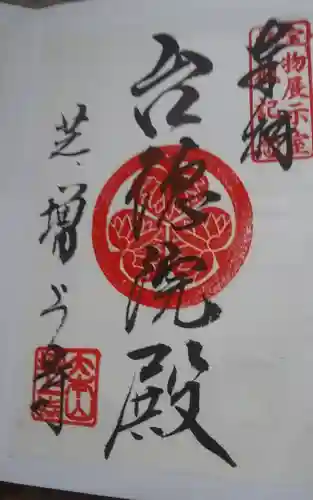 奉拝
宝物展示室
記念
台徳院殿
芝増上寺